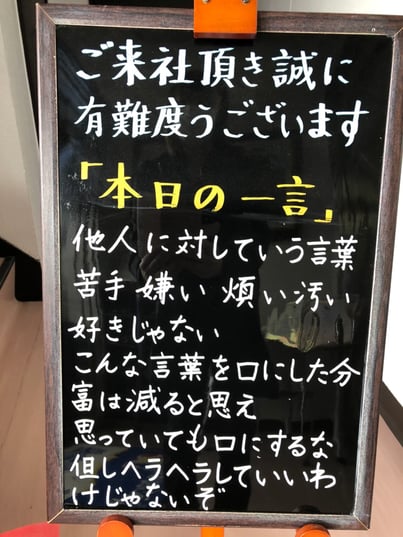 ご来社頂き誠に
有難度うございます
「本日の一言」
他人に対していう言葉
苦手 嫌い 煩い汚い
好きじゃない
こんな言葉を口にした分
富は減ると思え
思っていても口にするな
但しヘラヘラしていいわ
けじゃないぞ